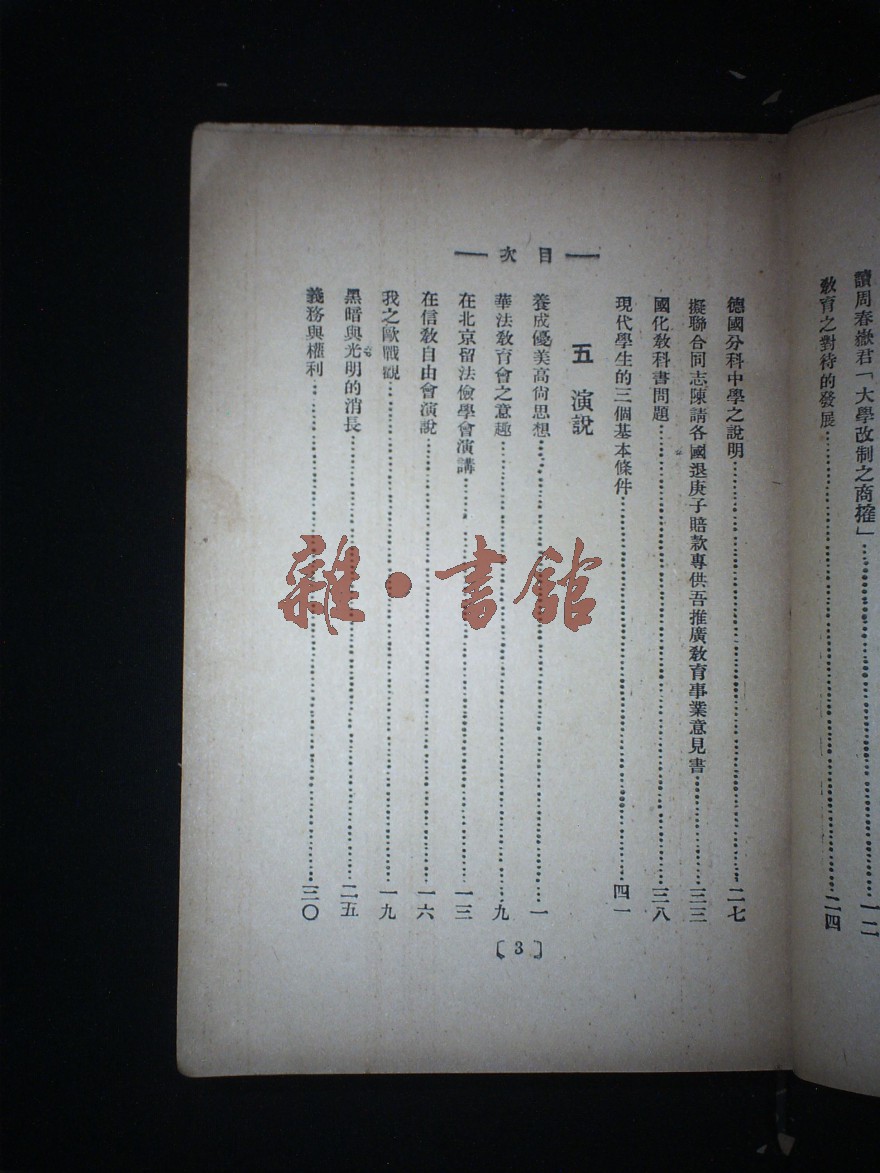 讀周春嶽君「大學改制之商榷」……一二
敎育之對待的發展……二四
目次
德國分科中學之說明……二七
擬聯合同志陳請各國退庚子賠款專供吾推廣敎育事業意見書……三三
國化敎科書問題……三八
現代學生的三個基本條件……四一
五 演說
養成優美高尙思想……一
華法敎育會之意趣……九
在北京留法儉學會演講……一三
在信敎自由會演說……一六
我之歐戰觀……一九
黑暗與光明的消長……二五
義務與權利……三〇
〔3〕
雜·書館